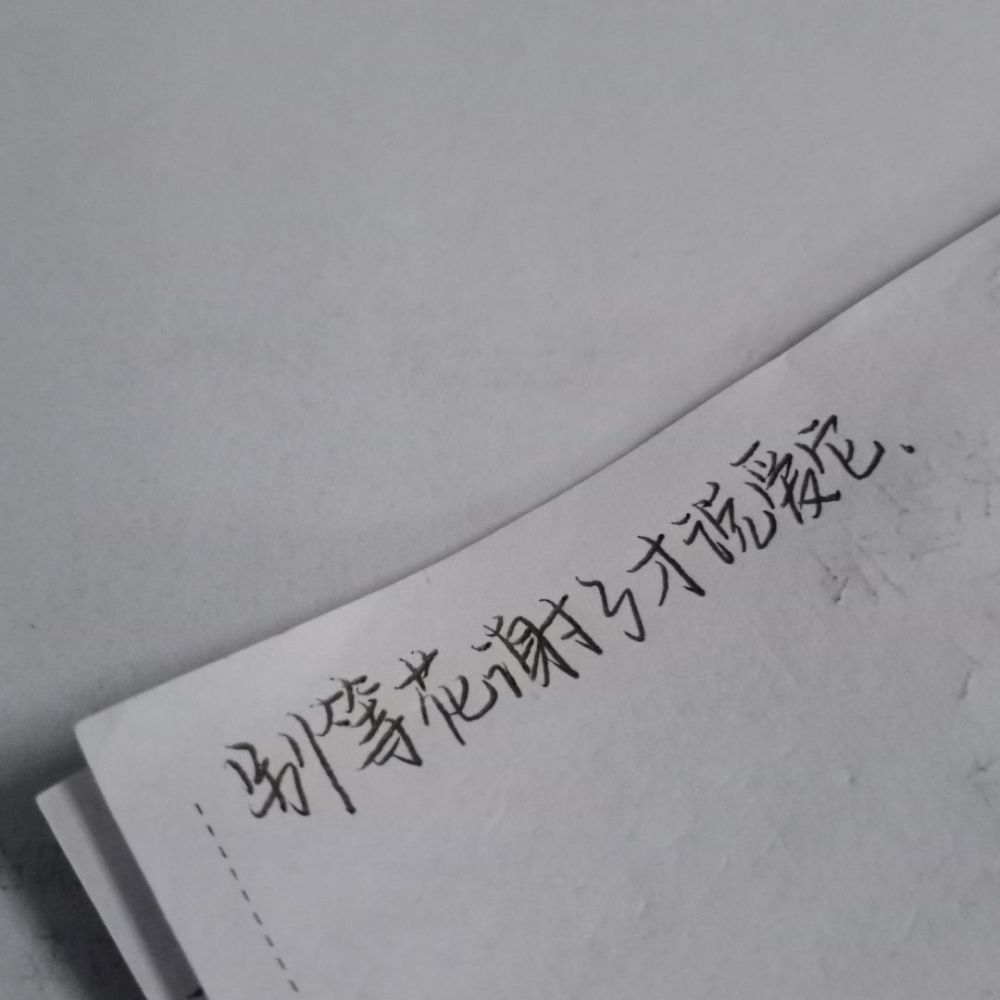 别等花谢了才说爱它.